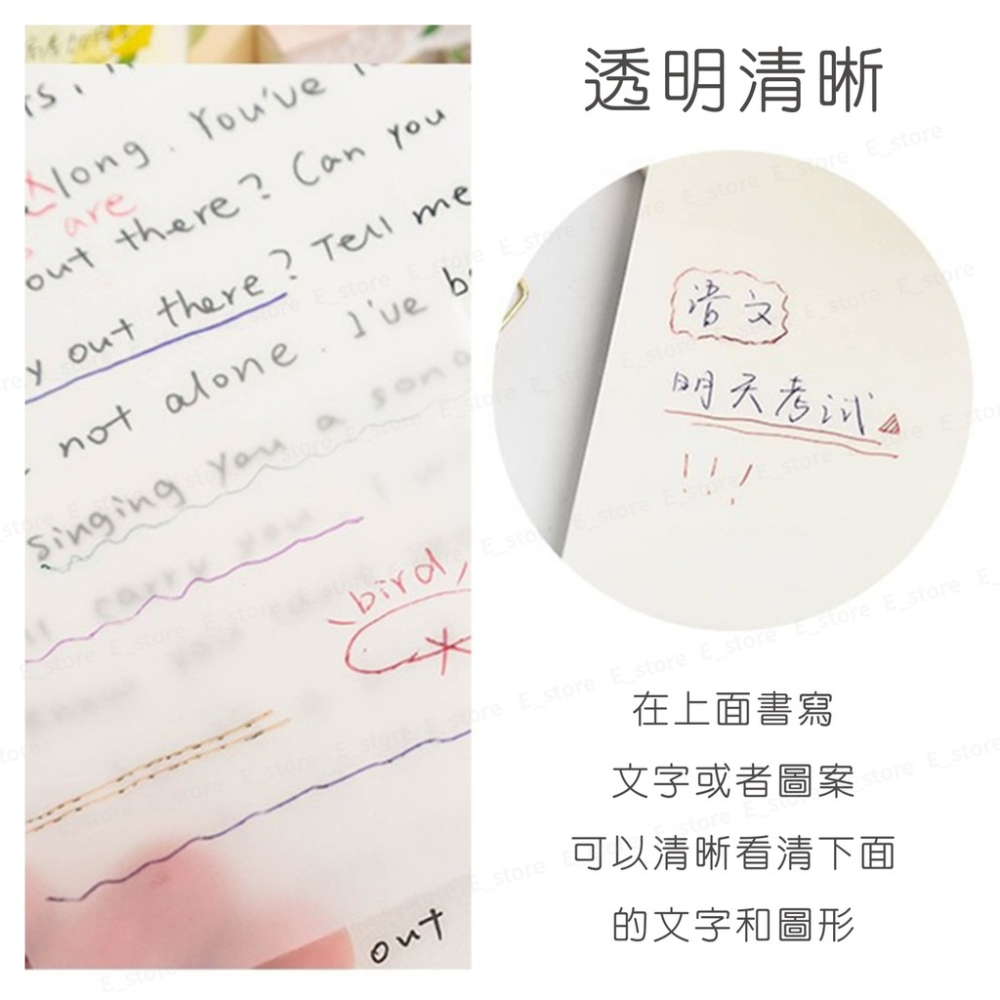 long. You've
are
out there? Can you
y out there? Tell me
not alone. I've b
singing you a song
ll carry you.
bird,
out
透明清晰
语文
明天考试
!!!
在上面書寫
文字或者圖案
可以清晰看清下面
的文字和圖形
E_store